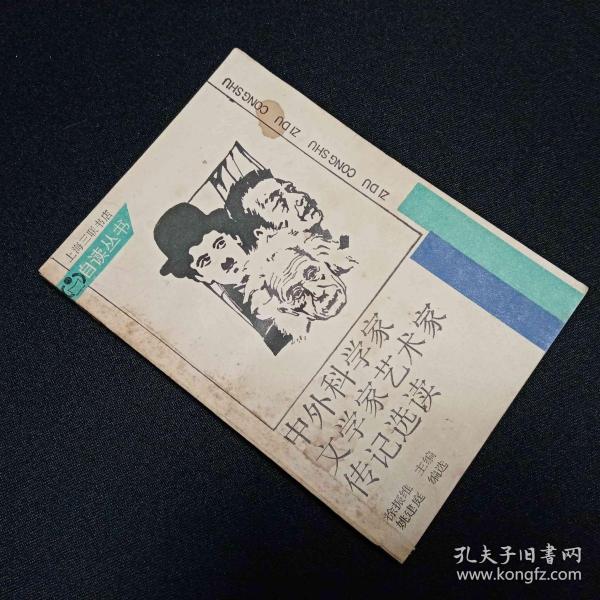 ZI DU CONG SHU ZI DU CONG SHU
上海三联书店
自读丛书
中外科学家
文学家艺术家
传记选读
徐振维 主编
姚建庭 编选
孔夫子旧书网
www.kongfz.com